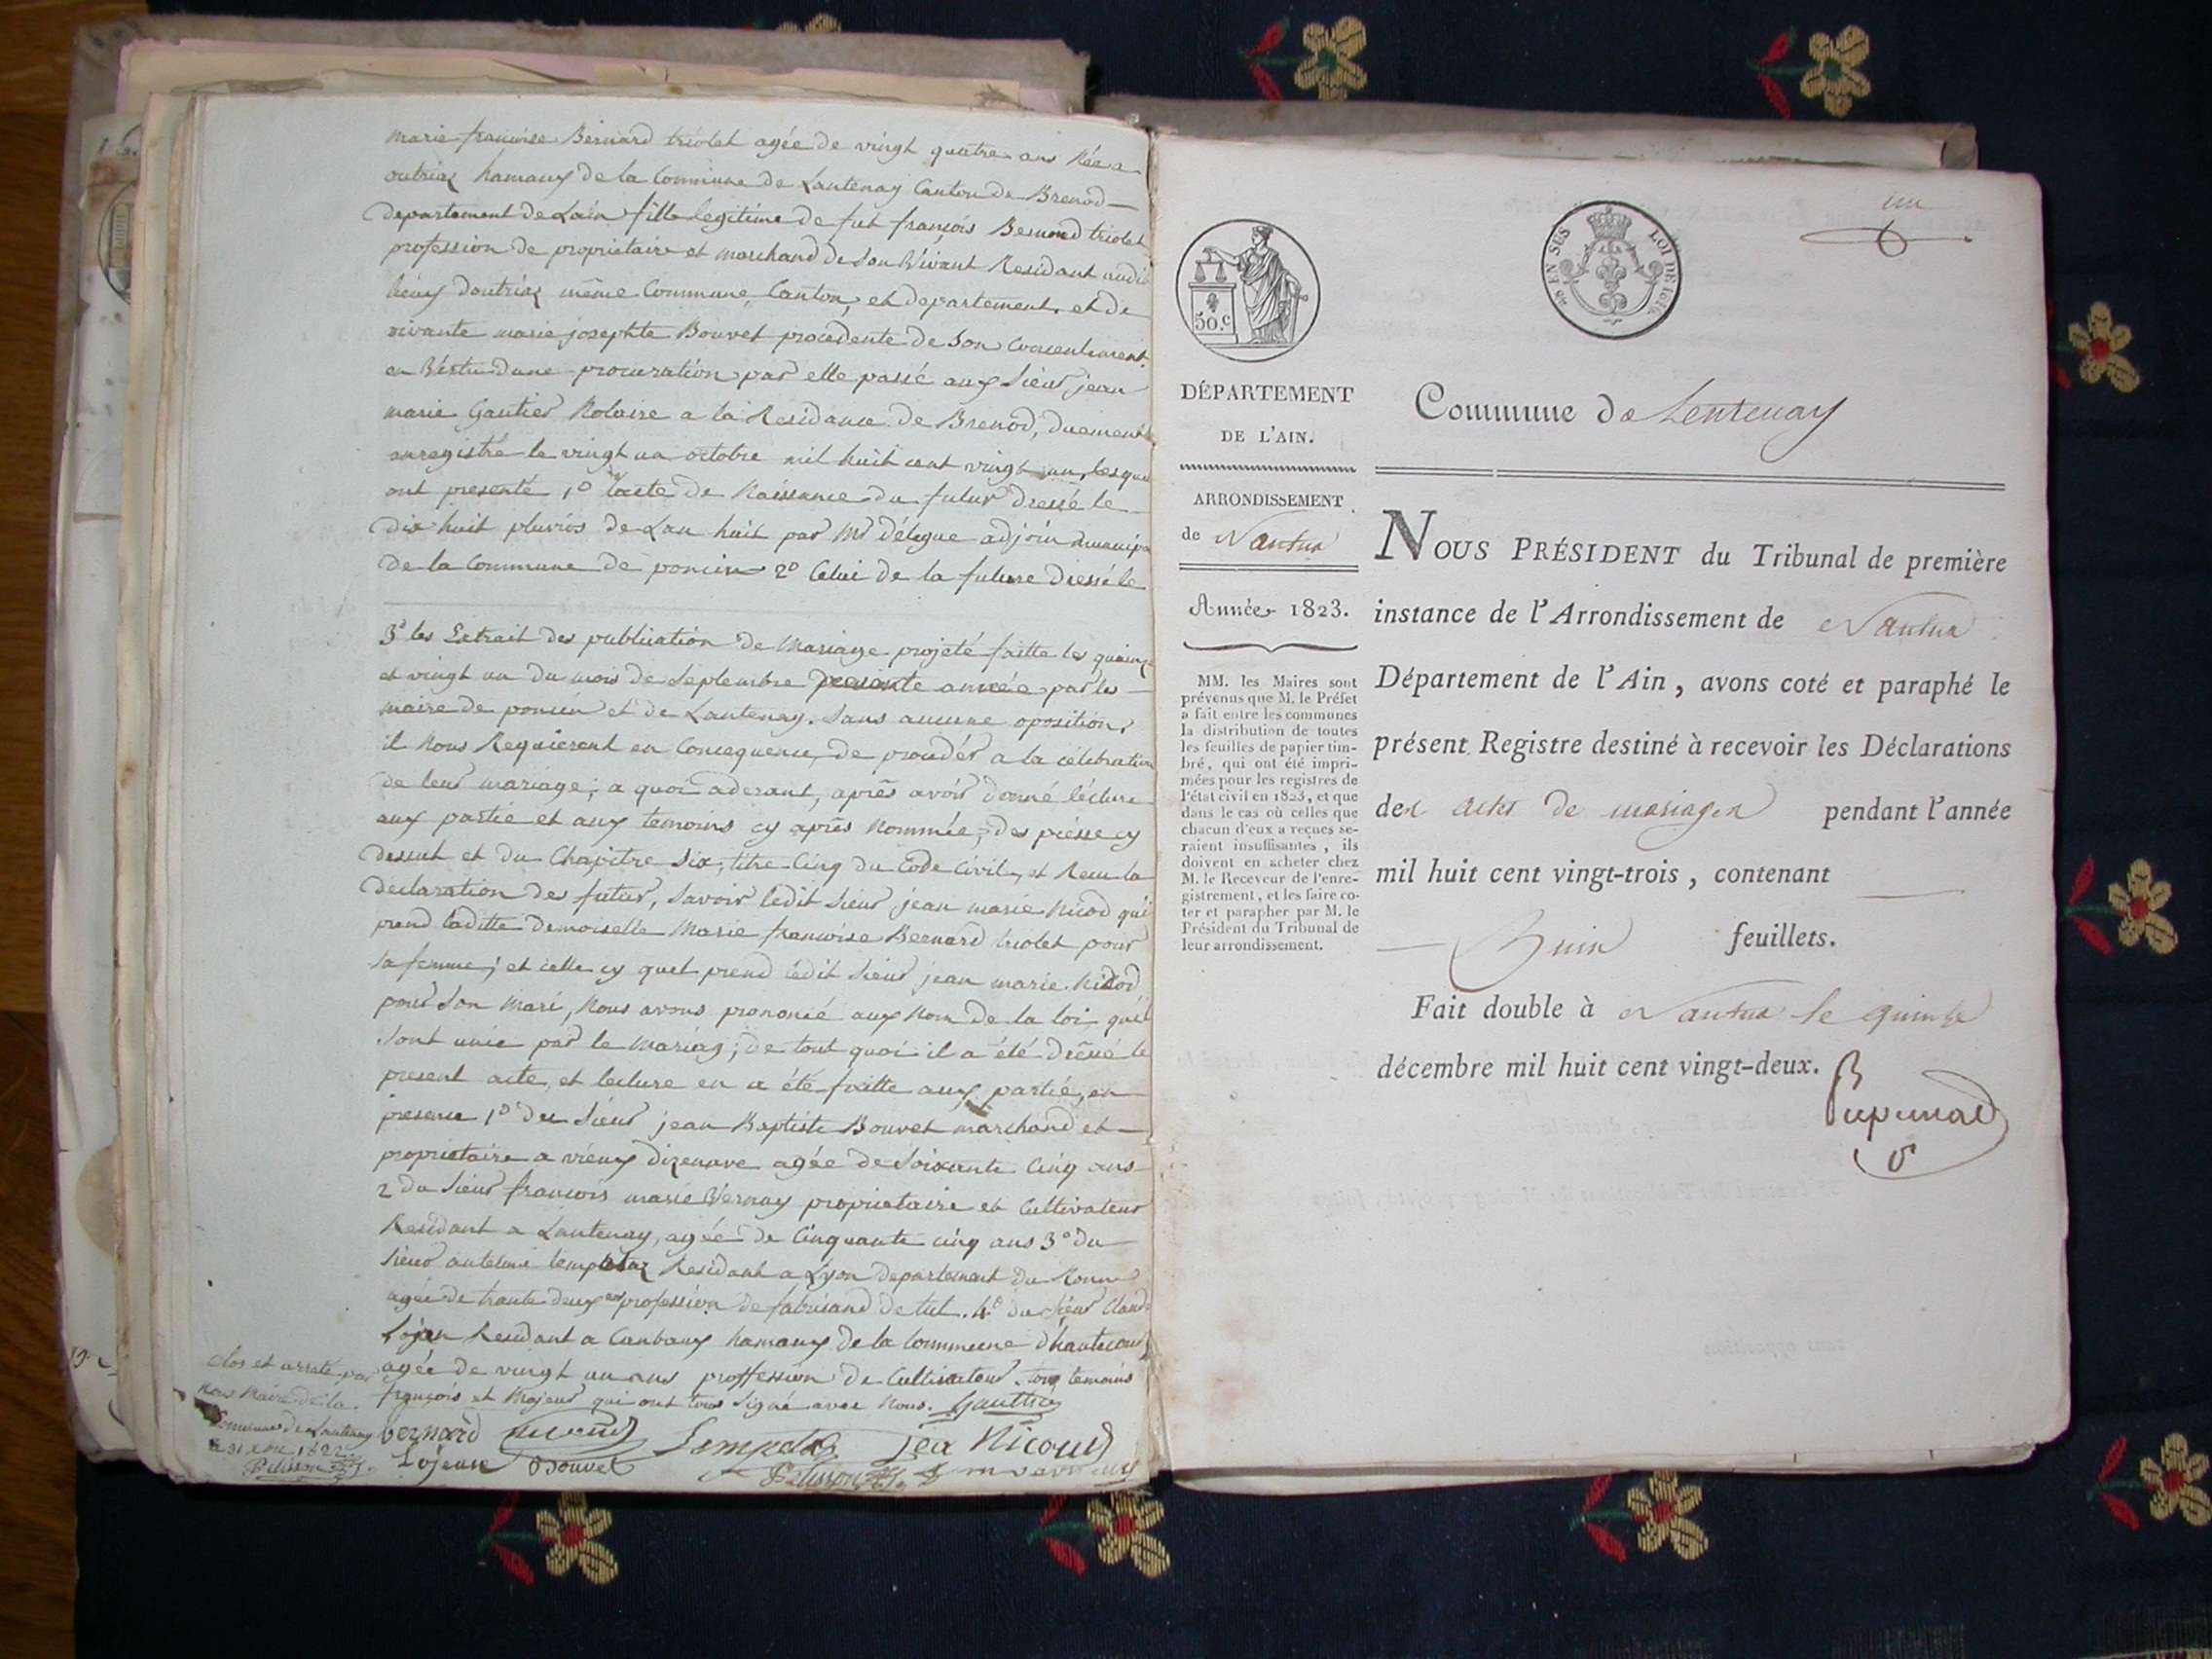 marie francoise Bernard triolet agée de vingt quatre ans Née a
outriaz hamaux de la Commune de Lantenay Canton de Brenod
departement de Lain fille legitime de fut françois Bernard triolet
profession de propriétaire et marchand de son vivant Residant audit
lieux doutriaz même Commune, Canton, et departement, et de
vivante marie josephte Bouvet procedente de Son Concentement
en Vertu dune procuration par elle passé aux Sieur jean
marie Gautier Notaire a la Residance de Brenod, duement
enregistré le vingt un octobre mil huit cent vingt un, lesquel
ont presenté 1º lacte de Naissance du futur Dressé le
dix huit pluvios de Lan huit par Mr délegue adjoin municipa
de la Commune de poncin 2º Celui de la future Dressé le
3º les Extrait des publication de Mariage projeté faitte les quainze
et vingt un du mois de Septembre presante année par les
maire de poncin et de Lantenay. Sans aucune oposition,
il Nous Requierent en Concequence, de procedér a la célébration
de leur mariage; a quoi aderant, aprês avoir donné lécture
aux partie et aux temoins cy aprês Nommée, des piésse cy
dessut et du Chapitre Six, titre Cinq du Code Civil, et Recu la
déclaration des futur, Savoir ledit Sieur jean marie Nicod qui
prend laditte Demoiselle Marie francoise Bernard triolet pour
Sa femme; et celle cy quel prend ledit Sieur jean marie Nicod
pour Son Mari, Nous avons prononcé aux Nom de la loi quil
Sont unie par le Mariag; de tout quoi il a été dréssé le
present acte, et lecture en a été faitte aux partié, en
presence 1º du Sieur jean Baptiste Bouvet marchand et
propriétaire a vieux dizenave agée de Soixante Cinq ans
2 du Sieur francois marie Vernay propriétaire et Cultivateur
Residant a Lantenay, agée de Cinquante cinq ans 3º du
Sieur antelme tempetaz Residant a Lyon departement du Ronne
agée de trante deux ans profession de fabricand de tul. 4º du Sieur Claude
Lojen Residant a Canbaux hamaux de la Commune d'hautecour
agée de vingt un ans proffession de Cultivateur. tous temoins
françois et Majeur qui ont tous Signé avec Nous. Gauthier
bernard Lempetaz jea Nicoud
Lojeux Bouvet Pelisson
Clos et arreté par
Nous Maire de la
Commune de Lantenay
le 31 Xbre 1822.
Pelisson
un
50.C
EN SES LOI DE 1816
DÉPARTEMENT
DE L'AIN.
ARRONDISSEMENT
de Nantua
Année 1823.
MM. les Maires sont
prévenus que M. le Préfet
a fait entre les communes
la distribution de toutes
les feuilles de papier tim-
bré, qui ont été impri-
mées pour les registres de
l'état civil en 1823, et que
dans le cas où celles que
chacun d'eux a reçues se-
raient insuffisantes, ils
doivent en acheter chez
M. le Receveur de l'enre-
gistrement, et les faire co-
ter et parapher par M. le
Président du Tribunal de
leur arrondissement.
Commune de Lentenay
NOUS PRÉSIDENT du Tribunal de première
instance de l'Arrondissement de Nantua
Département de l'Ain, avons coté et paraphé le
présent Registre destiné à recevoir les Déclarations
des actes de mariages pendant l'année
mil huit cent vingt-trois, contenant
huit feuillets.
Fait double à Nantua le quinze
décembre mil huit cent vingt-deux.